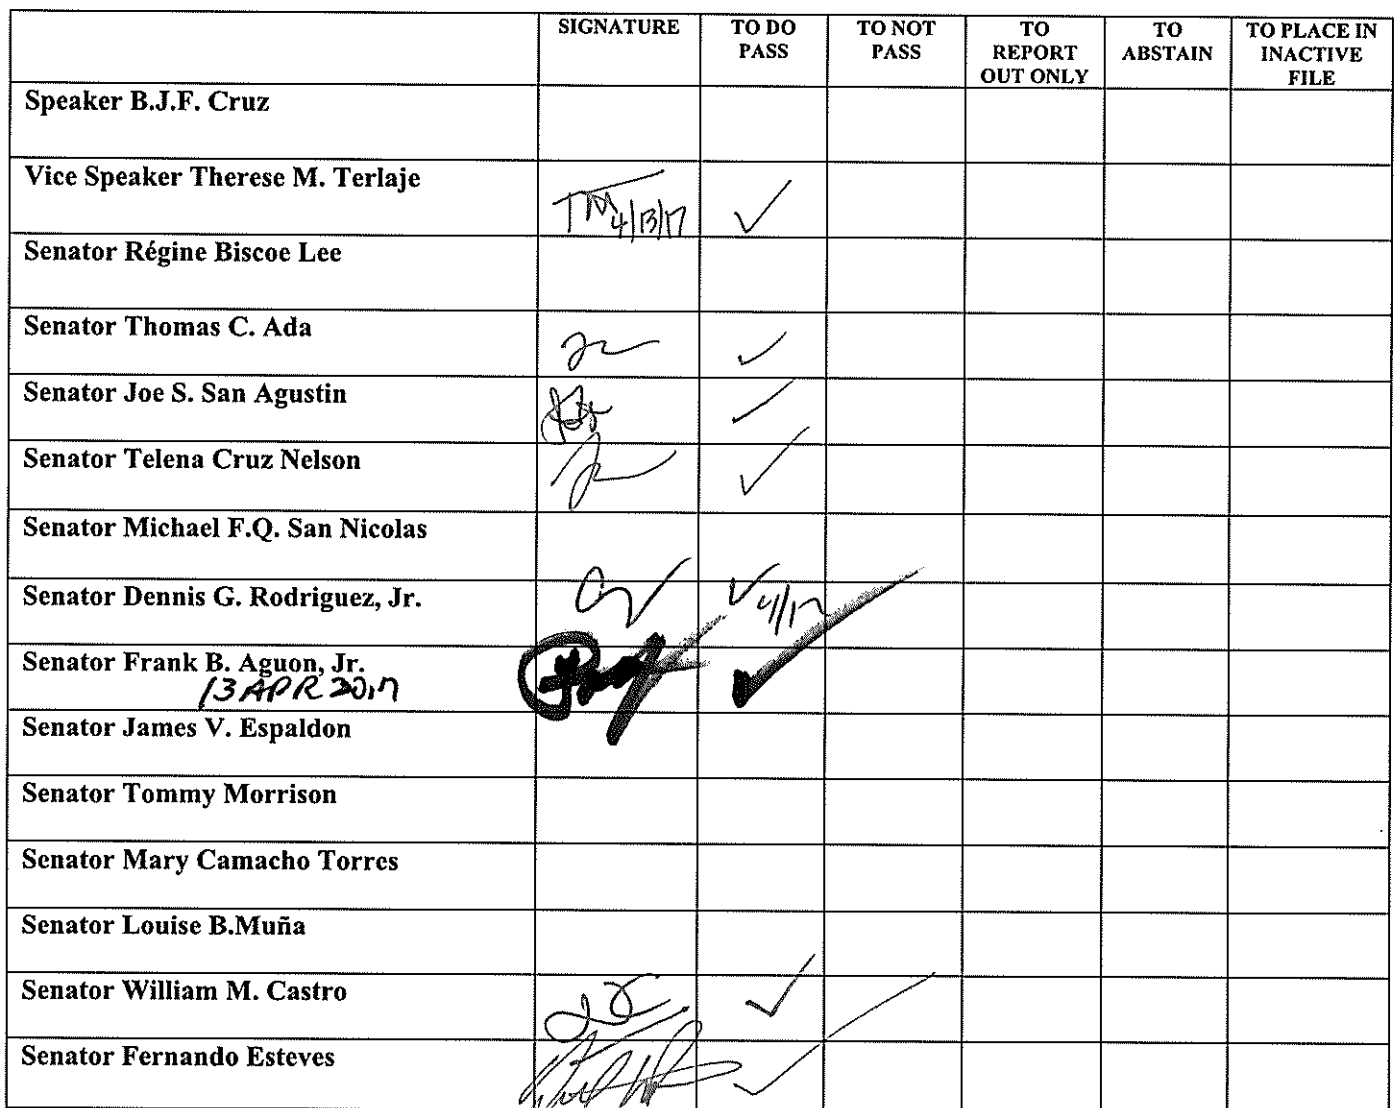 SIGNATURE TO DO PASS TO NOT PASS TO REPORT OUT ONLY TO ABSTAIN TO PLACE IN INACTIVE FILE
Speaker B.J.F. Cruz
Vice Speaker Therese M. Terlaje
TM 4/13/17 ✓
Senator Régine Biscoe Lee
Senator Thomas C. Ada ✓
Senator Joe S. San Agustin ✓
Senator Telena Cruz Nelson ✓
Senator Michael F.Q. San Nicolas
Senator Dennis G. Rodriguez, Jr. ✓
Senator Frank B. Aguon, Jr. ✓
13 APR 2017
Senator James V. Espaldon
Senator Tommy Morrison
Senator Mary Camacho Torres
Senator Louise B.Muña
Senator William M. Castro ✓
Senator Fernando Esteves ✓